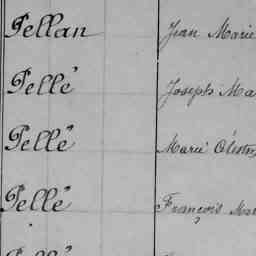 Pellan Jean Marie
Pellé Joseph Ma
Pellé Marie
Pellé François Mar
Pellé